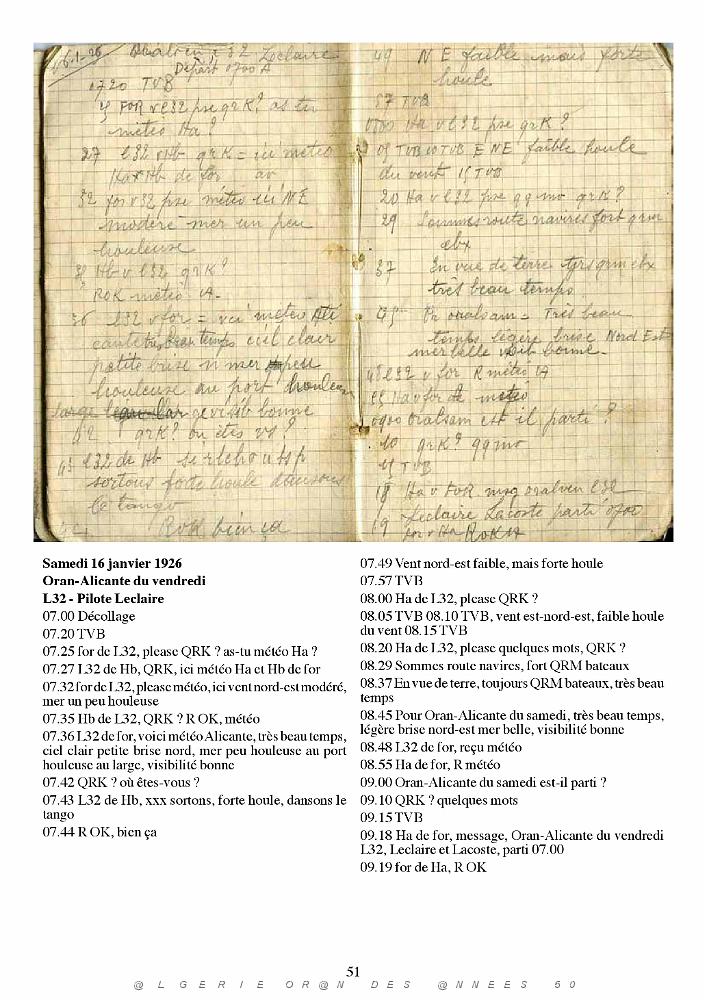 16.1.26 Oralven = l32 Leclaire
Départ 0700 A
0720 TVB
25 FOR v l32 pse qrk? as tu
météo Ha?
27 l32 v Hb qrk = ici météo
Ha v Hb de for
32 for v l32 pse météo ici NE
modéré mer un peu
houleuse
35 Hb v l32 qrk?
ROK météo
36 l32 v for = voici météo Ali
cante très beau temps ciel clair
petite brise n mer peu
houleuse au port houleuse
large visib bonne
42 qrk? où êtes vs?
43 l32 de Hb
sortons forte houle dansons
le tango
ROK bien ça
49 N E faible mais forte
houle
57 TVB
0800 Ha v l32 pse qrk?
05 TVB 10 TVB E NE faible houle
du vent 15 TVB
20 Ha v l32 pse qq mo qrk?
29 Sommes route navires fort qrm
ebx
37 En vue de terre tjrs qrm ebx
très beau temps
45 Pr oralsam = Très beau
temps légère brise Nord Est
mer belle visib bonne.
48 l32 v for R météo
55 Ha v for R météo
0900 oralsam est il parti?
10 qrk? qq mo
15 TVB
18 Ha v FOR msg oralven l32
Leclaire Lacoste parti 0700
19 for v Ha ROK
Samedi 16 janvier 1926
Oran-Alicante du vendredi
L32 - Pilote Leclaire
07.00 Décollage
07.20 TVB
07.25 for de L32, please QRK ? as-tu météo Ha ?
07.27 L32 de Hb, QRK, ici météo Ha et Hb de for
07.32 for de L32, please météo, ici vent nord-est modéré,
mer un peu houleuse
07.35 Hb de L32, QRK ? R OK, météo
07.36 L32 de for, voici météo Alicante, très beau temps,
ciel clair petite brise nord, mer peu houleuse au port
houleuse au large, visibilité bonne
07.42 QRK ? où êtes-vous ?
07.43 L32 de Hb, xxx sortons, forte houle, dansons le
tango
07.44 R OK, bien ça
07.49 Vent nord-est faible, mais forte houle
07.57 TVB
08.00 Ha de L32, please QRK ?
08.05 TVB 08.10 TVB, vent est-nord-est, faible houle
du vent 08.15 TVB
08.20 Ha de L32, please quelques mots, QRK ?
08.29 Sommes route navires, fort QRM bateaux
08.37 En vue de terre, toujours QRM bateaux, très beau
temps
08.45 Pour Oran-Alicante du samedi, très beau temps,
légère brise nord-est mer belle, visibilité bonne
08.48 L32 de for, reçu météo
08.55 Ha de for, R météo
09.00 Oran-Alicante du samedi est-il parti ?
09.10 QRK ? quelques mots
09.15 TVB
09.18 Ha de for, message, Oran-Alicante du vendredi
L32, Leclaire et Lacoste, parti 07.00
09.19 for de Ha, R OK
51
@ L G E R I E O R @ N D E S @ N N E E S 5 0